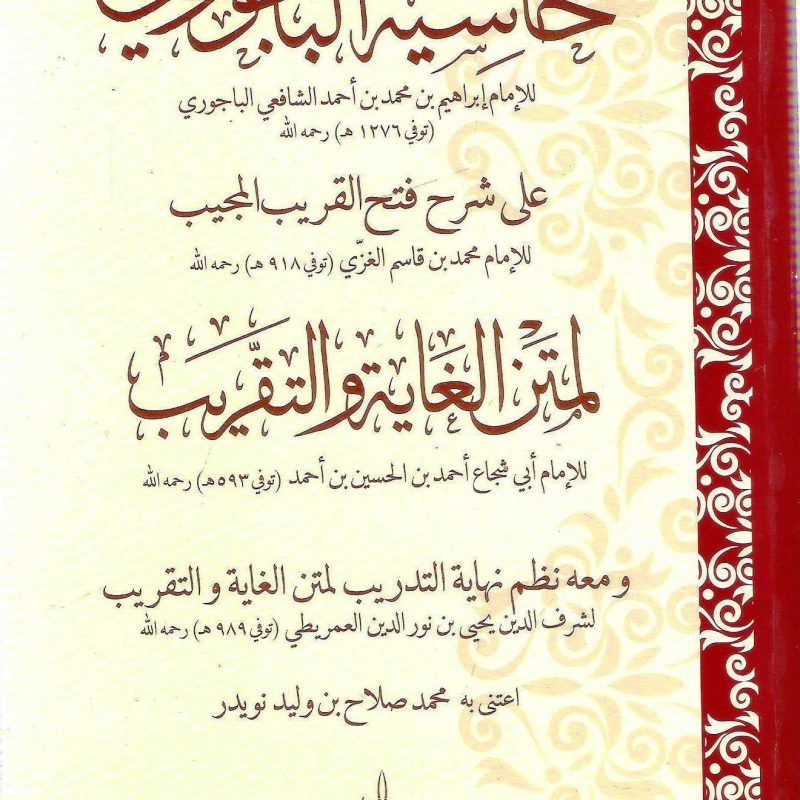 حاشية الباجوري
للإمام إبراهيم بن محمد بن أحمد الشافعي الباجوري
(توفي ١٢٧٦ هـ) رحمه الله
على شرح فتح القريب المجيب
للإمام محمد بن قاسم الغزّي (توفي ٩١٨ هـ) رحمه الله
لمتن الغاية والتقريب
للإمام أبي شجاع أحمد بن الحسين بن أحمد (توفي ٥٩٣ هـ) رحمه الله
ومعه نظم نهاية التدريب لمتن الغاية والتقريب
لشرف الدين يحيى بن نور الدين العمريطي (توفي ٩٨٩ هـ) رحمه الله
اعتنى به محمد صلاح بن وليد نويدر